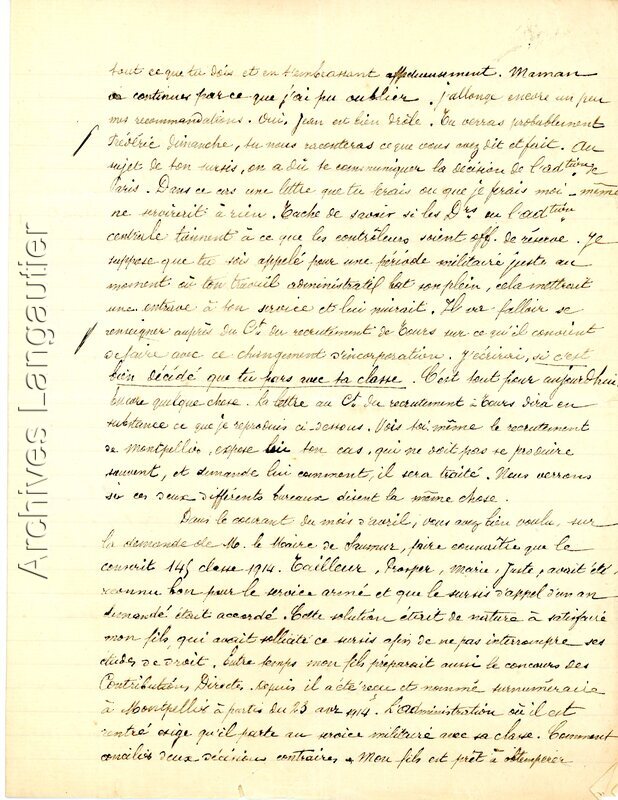 tout ce que tu dois et en t'embrassant affectueusement. Maman
va continuer parce que j'ai pu oublier. J'allonge encore un peu
mes recommandations. Oui, Jean est bien drôle. Tu verras probablement
Frédéric dimanche, tu nous raconteras ce que vous avez dit et fait. Au
sujet de ton sursis, on a dû te communiquer la décision de l'adtion de
Paris. Dans ce cas une lettre que tu ferais ou que je ferais moi-même
ne servirait à rien. Tâche de savoir si les Drs ou l'adtion
centrale tiennent à ce que les contrôleurs soient off. de réserve. Je
suppose que tu sois appelé pour une période militaire juste au
moment où ton travail administratif bat son plein, cela mettrait
une entrave à ton service et lui nuirait. Il va falloir se
renseigner auprès du Ct. du recrutement de Tours sur ce qu'il convient
de faire avec ce changement d'incorporation. J'écrirai, si c'est
bien décidé que tu pars avec ta classe. C'est tout pour aujourd'hui.
Encore quelque chose. La lettre au Ct. du recrutement à Tours dira en
substance ce que je reproduis ci-dessous. Vois toi-même le recrutement
de Montpellier, expose lui ton cas, qui ne doit pas se produire
souvent, et demande lui comment, il sera traité. Nous verrons
si ces deux différents bureaux disent la même chose.
Dans le courant du mois d'avril, vous avez bien voulu, sur
la demande de M. le Maire de Saumur, faire connaître que le
conscrit 145 classe 1914. Tailleur, Prosper, Marie, Juste, avait été
reconnu bon pour le service armé et que le sursis d'appel d'un an
demandé était accordé. Cette solution était de nature à satisfaire
mon fils, qui avait sollicité ce sursis afin de ne pas interrompre ses
études de droit. Entre temps mon fils préparait aussi le concours des
Contributions Directes. Depuis il a été reçu et nommé surnuméraire
à Montpellier à partir du 25 avr 1914. L'administration où il est
rentré exige qu'il parte au service militaire avec sa classe. Comment
concilier deux décisions contraires. Mon fils est prêt à obtempérer
Archives Langautier